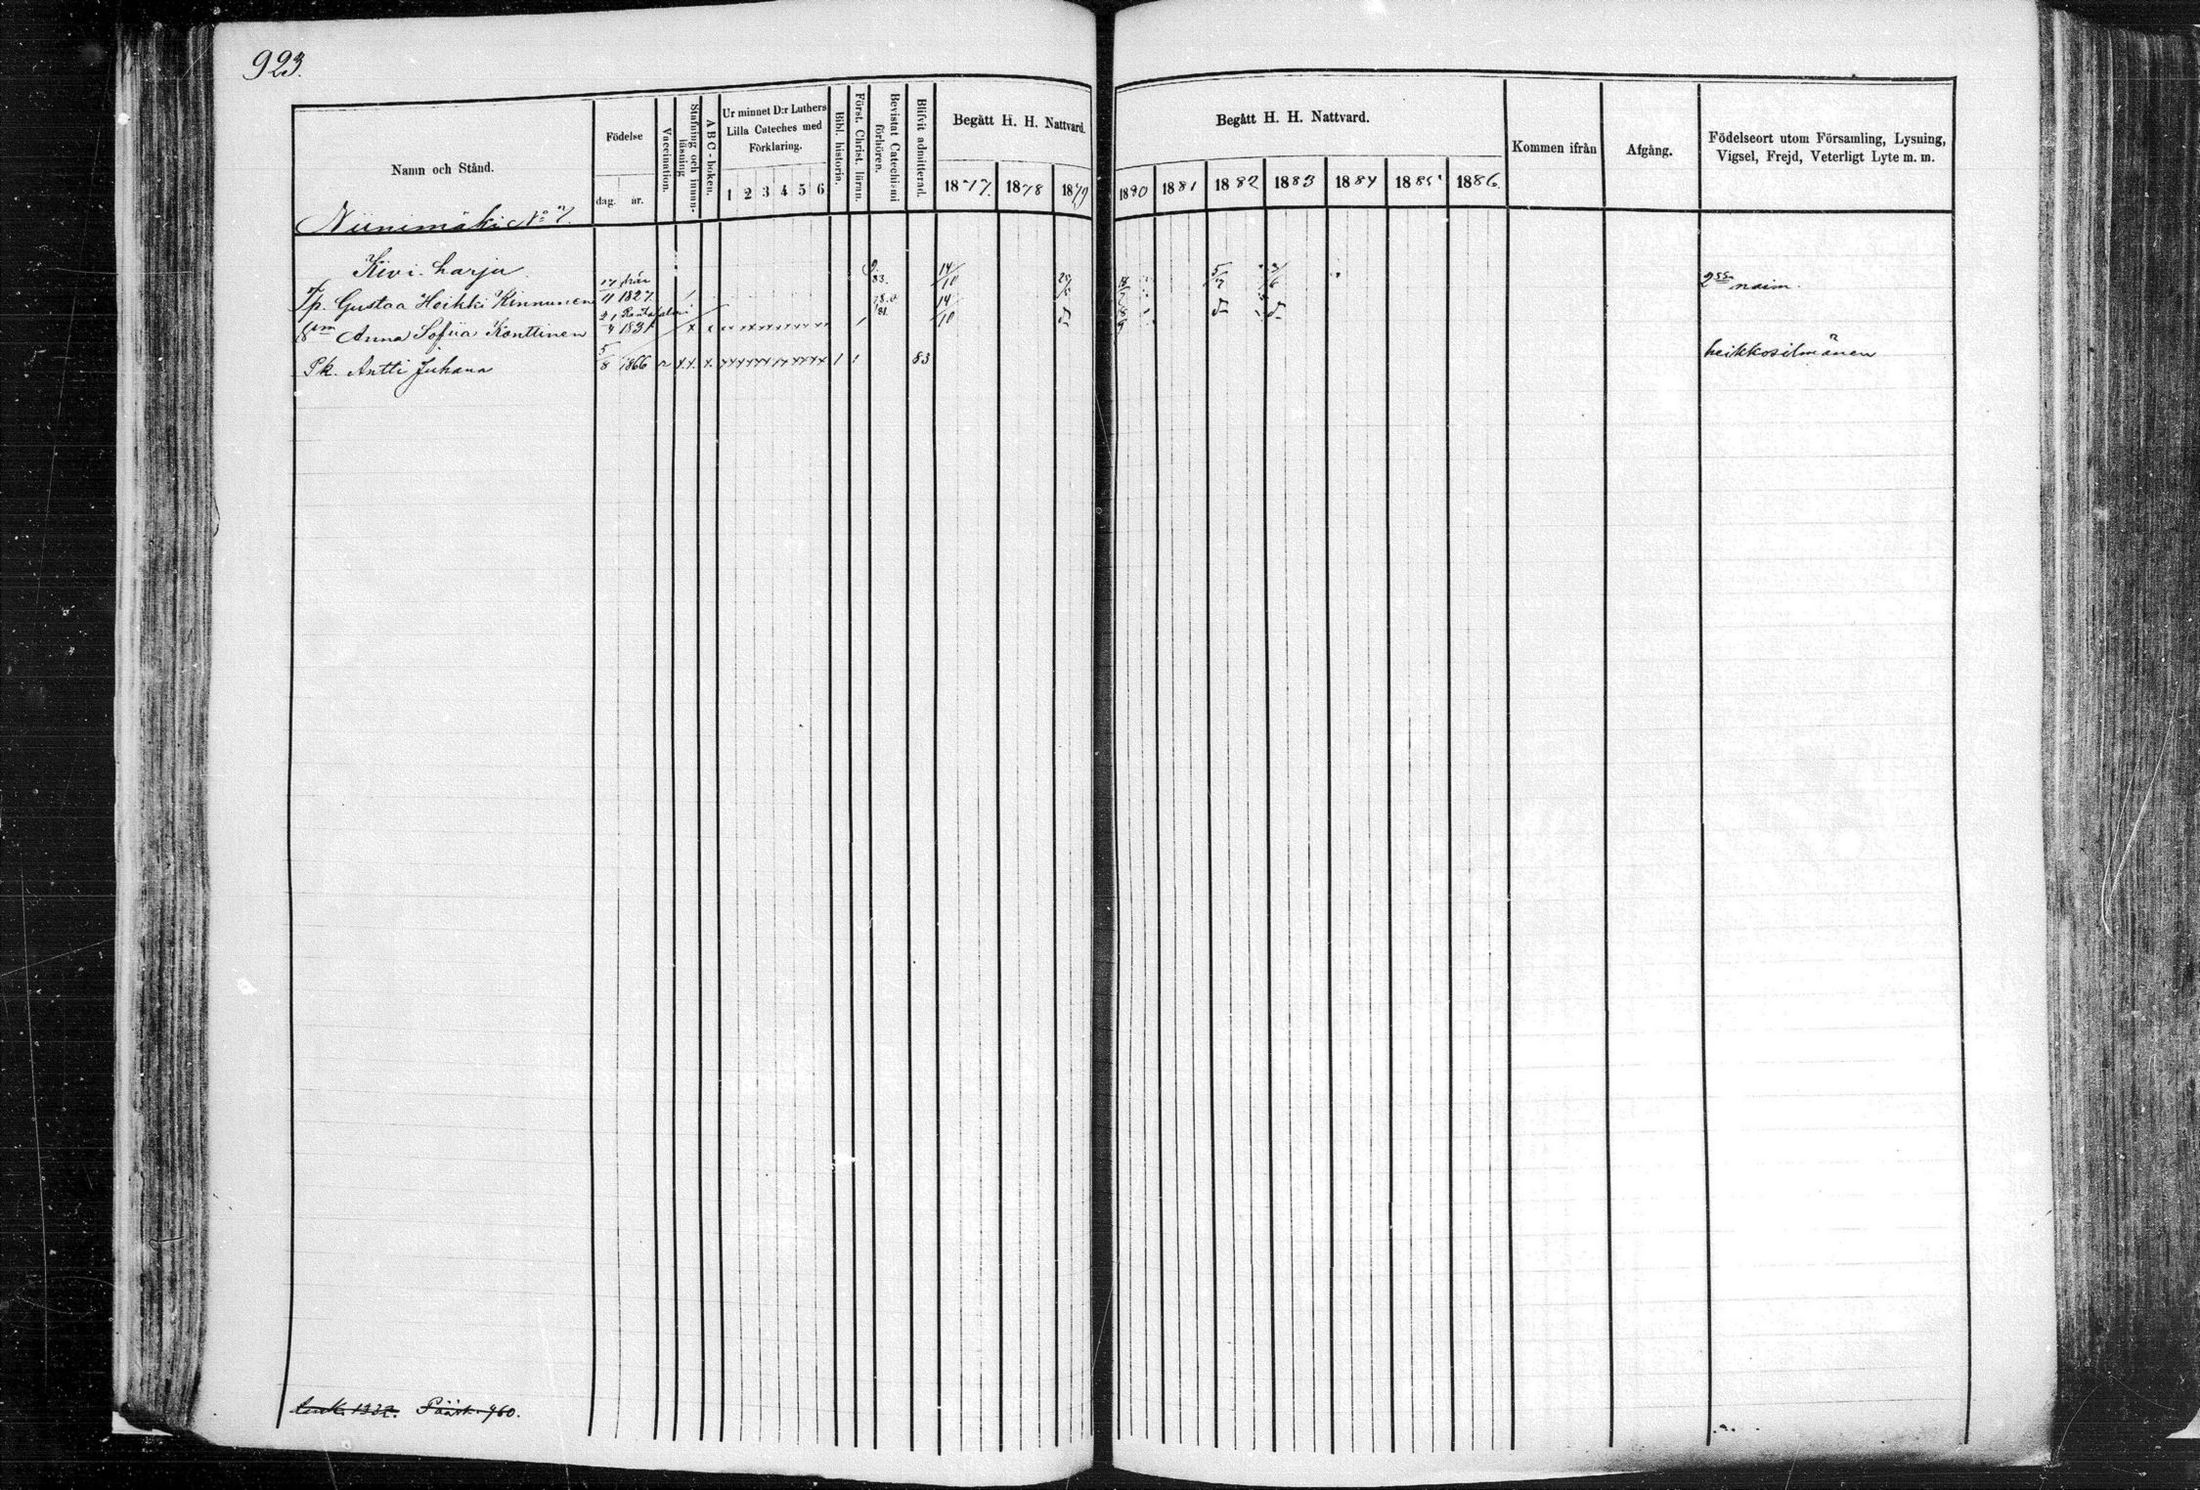 923.
Namn och Stånd.
Födelse
dag. år.
Vaccination.
Stafning och innan-läsning
ABC-boken.
Ur minnet D:r Luthers
Lilla Cateches med
Förklaring.
1 2 3 4 5 6
Bibl. historia.
Först. Christ. läran.
Bevistat Catechismi förhören.
Blifvit admitterad.
Begått H. H. Nattvard.
1877. 1878 1879
Begått H. H. Nattvard.
1880 1881 1882 1883 1884 1885 1886.
Kommen ifrån
Afgång.
Födelseort utom Församling, Lysning,
Vigsel, Frejd, Veterligt Lyte m. m.
Niinimäki No 7.
Kivi-harju
Tp. Gustaa Heikki Kinnunen 17/11 1827 14/10 5/7 2ssa naim.
Anna Sofiia Konttinen 21/4 1831 14/10
Pk. Antti Juhana 5/8 1866 83 heikkosilmänen
960.